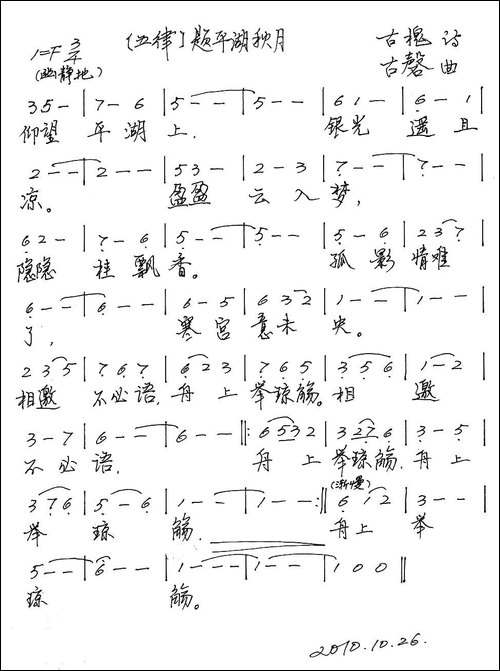 [五律] 题平湖秋月
1=F 3/4
(幽静地)
古槐 诗
古磬 曲
3 5 - | 7 - 6 | 5 - - | 5 - - | 6 1 - | 6 - 1 |
仰望 平 湖 上. 银光 遥 且
2 - - | 2 - - | 5 3 - | 2 - 3 | 7 - - | 7 - - |
凉。 盈盈 云 入 梦,
6 2 - | 7 - 6 | 5 - - | 5 - - | 5 - 6 | 2 3 7 |
隐隐 桂 飘 香。 孤 影 情难
6 - - | 6 - - | 6 - 5 | 6 3 2 | 1 - - | 1 - - |
了, 寒 宫 意未 央。
2 3 5 | 7 6 7 | 6 2 3 | 7 6 5 | 3 5 6 | 1 - 2 |
相邀 不必语, 舟 上 举琼觞。相 邀
3 - 7 | 6 - - | 6 - - ‖: 6 5 3 2 | 3 2 7 6 | 3 - 5 |
不 必 语, 舟 上 举琼觞, 舟 上
3 7 6 | 5 - 6 | 1 - - | 1 - - :‖ 6 1 2 | 3 - - |
(渐慢)
举 琼 觞. 舟上 举
5 - - | 6 - - | 1 - - - | 1 - - | 1 0 0 ‖
琼 觞。
2010.10.26.